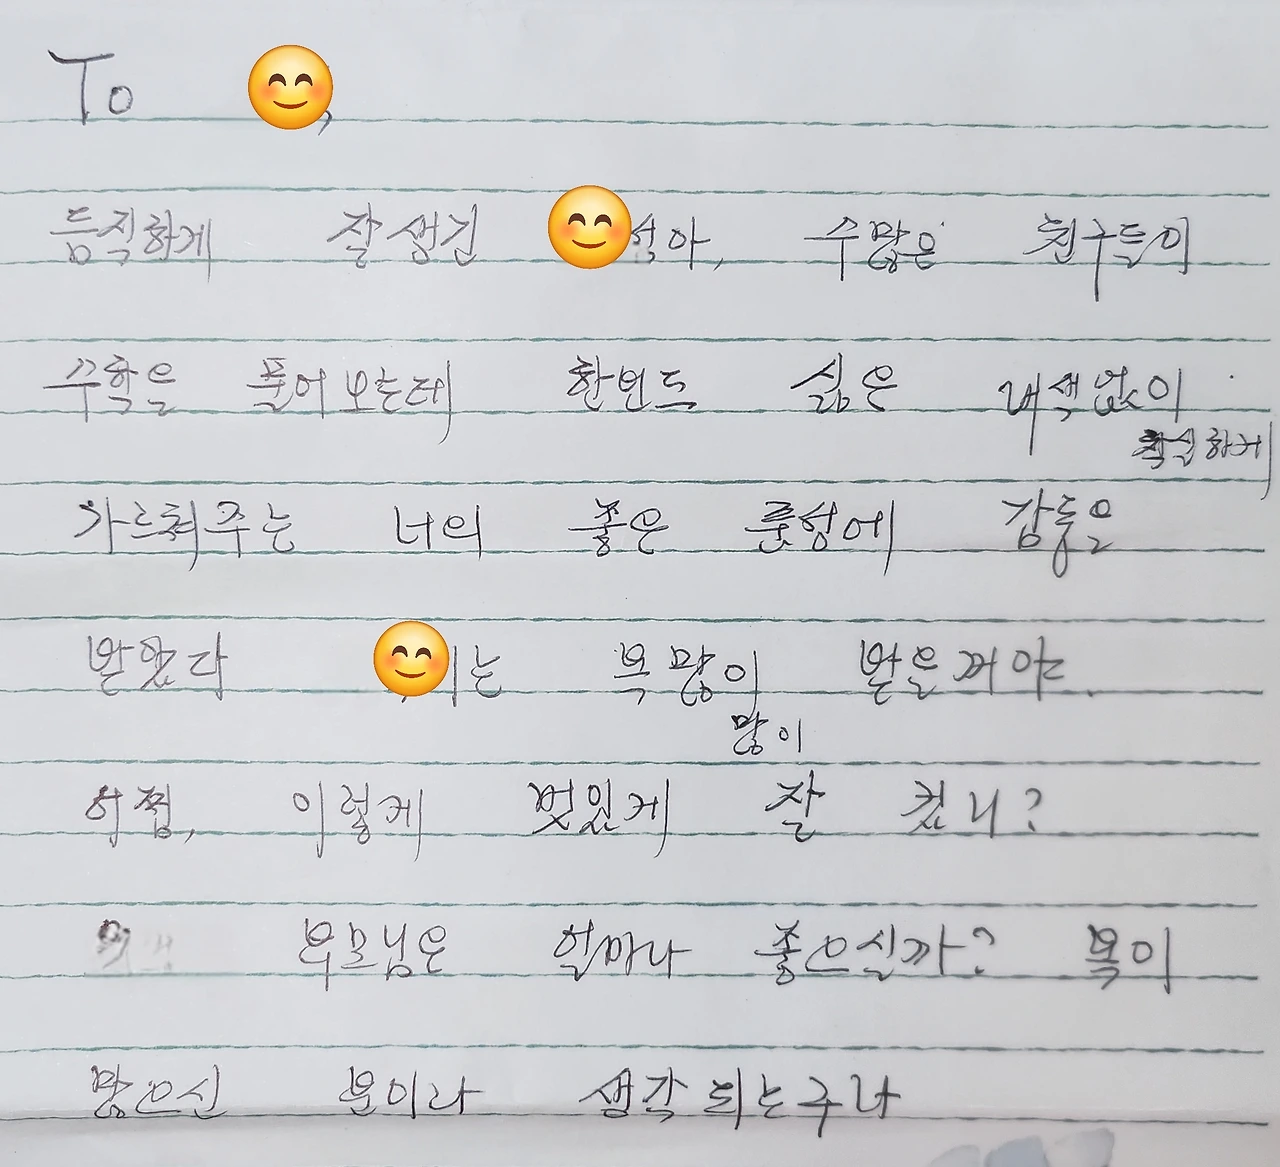 To ,
듬직하게 잘생긴 석아, 수많은 친구들이
수학을 풀어보는데 한번도 싫은 내색없이
착실하게
가르쳐주는 너의 좋은 품성에 감동을
받았다 이는 복많이 받을꺼야.
많이
어쩜, 이렇게 멋있게 잘 컸니?
부모님은 얼마나 좋으실까? 복이
많으신 분이라 생각되는구나